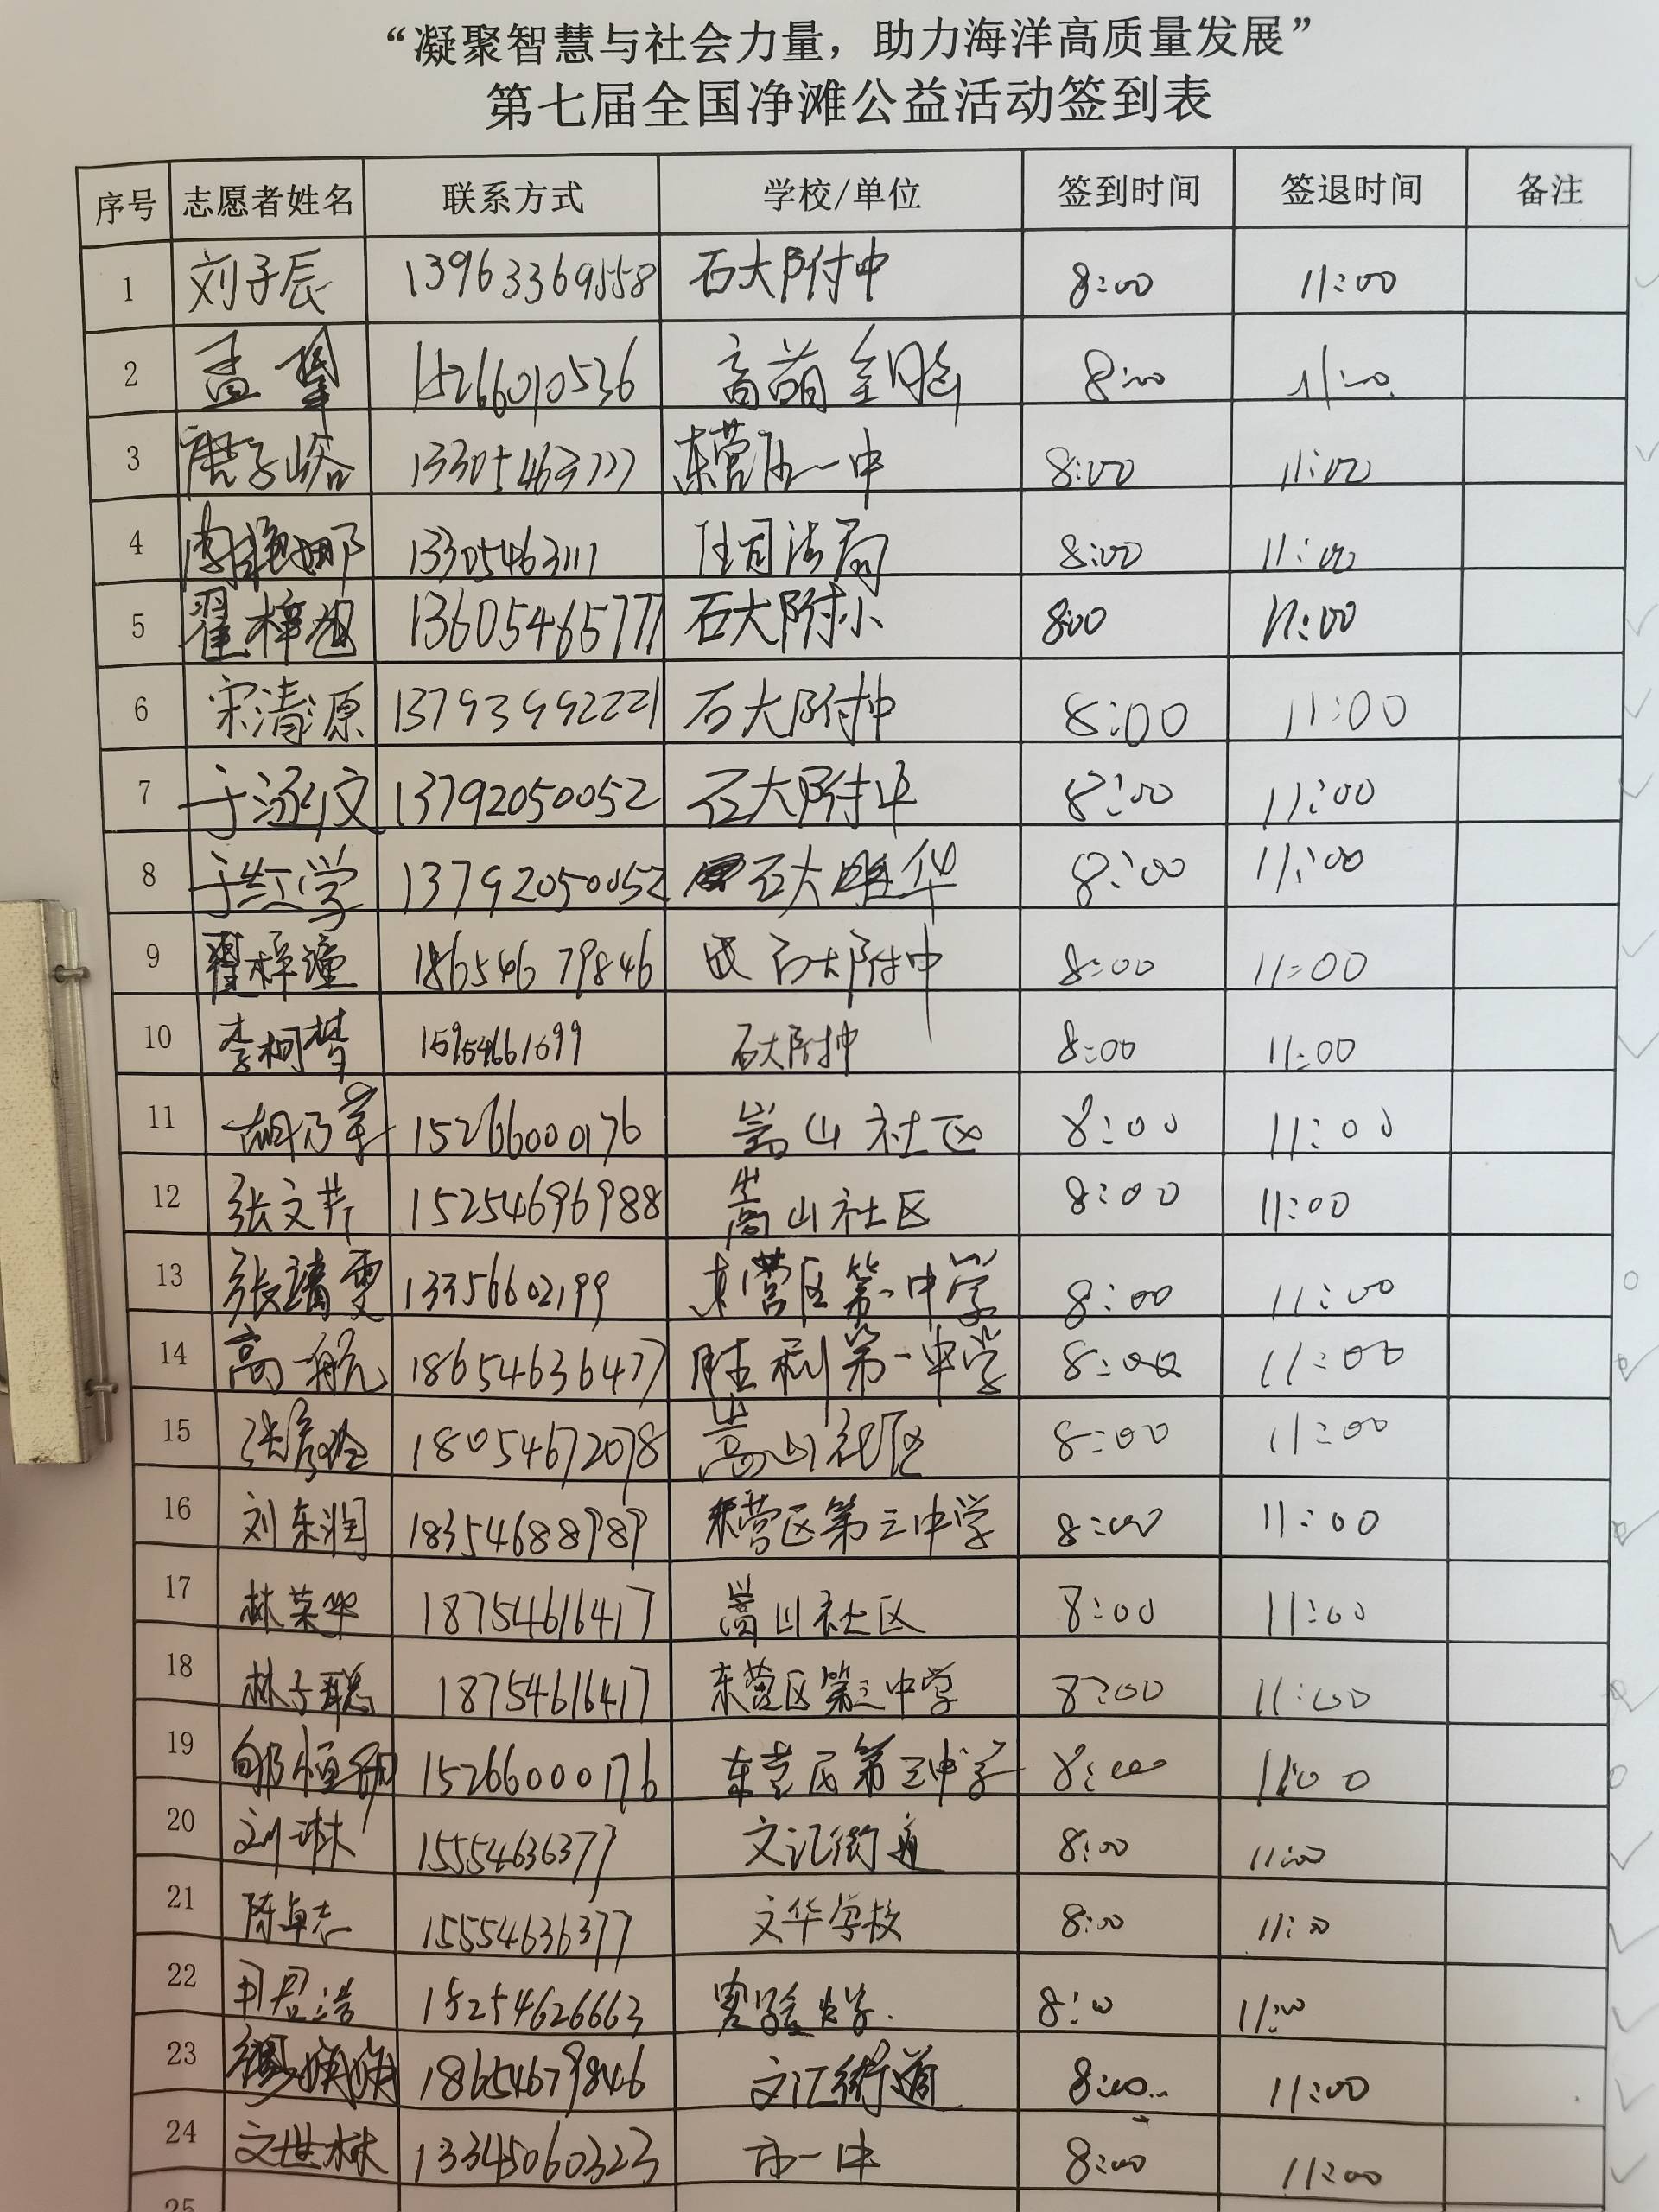 “凝聚智慧与社会力量，助力海洋高质量发展”
第七届全国净滩公益活动签到表
序号 志愿者姓名 联系方式 学校/单位 签到时间 签退时间 备注
1 刘子辰 13963369558 石大附中 8:00 11:00
2 孟 15266010536 8:00 11:00
3 唐子峪 13305463777 东营区一中 8:00 11:00
4 13305463111 司法局 8:00 11:00
5 翟梓 13605465777 石大附小 8:00 11:00
6 宋清源 13793992221 石大附中 8:00 11:00
7 于涵文 13792050052 石大附中 8:00 11:00
8 于红学 13792050052 石大胜华 8:00 11:00
9 翟梓潼 18654679846 石大附中 8:00 11:00
10 李柯梦 15954661699 石大附中 8:00 11:00
11 胡乃军 15266000176 嵩山社区 8:00 11:00
12 张文芹 15254696988 嵩山社区 8:00 11:00
13 张靖雯 13356602199 东营区第一中学 8:00 11:00
14 高一航 18654636477 胜利第一中学 8:00 11:00
15 张 18054672078 嵩山社区 8:00 11:00
16 刘东润 18354688989 东营区第三中学 8:00 11:00
17 林荣华 18754616417 嵩山社区 8:00 11:00
18 林子聪 18754616417 东营区第三中学 8:00 11:00
19 15266000176 东营区第三中学 8:00 11:00
20 刘琳 15554636377 文汇街道 8:00 11:00
21 陈卓志 15554636377 文华学校 8:00 11:00
22 浩 15254626663 实验 8:00 11:00
23 18654679846 文汇街道 8:00 11:00
24 文世林 13345060323 市一中 8:00 11:00
25